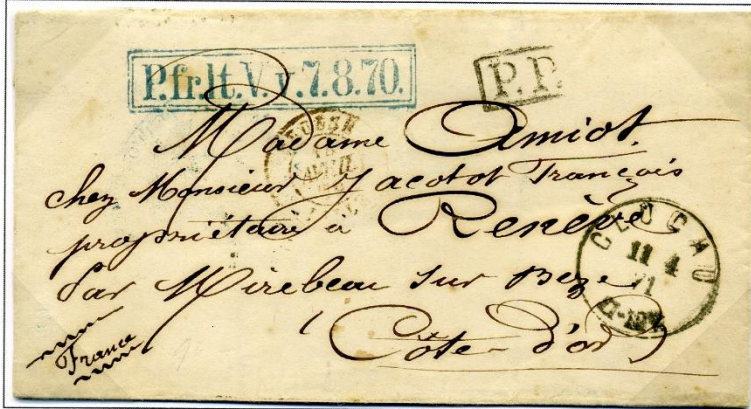 P.fr.lt.V.v.7.8.70.
P.P.
Madame Amiot.
chez Monsieur Jacotot François
propriétaire a Renève
Par Mirebeau sur Beze
Côte-d'or
France
GLOGAU
11 4
71